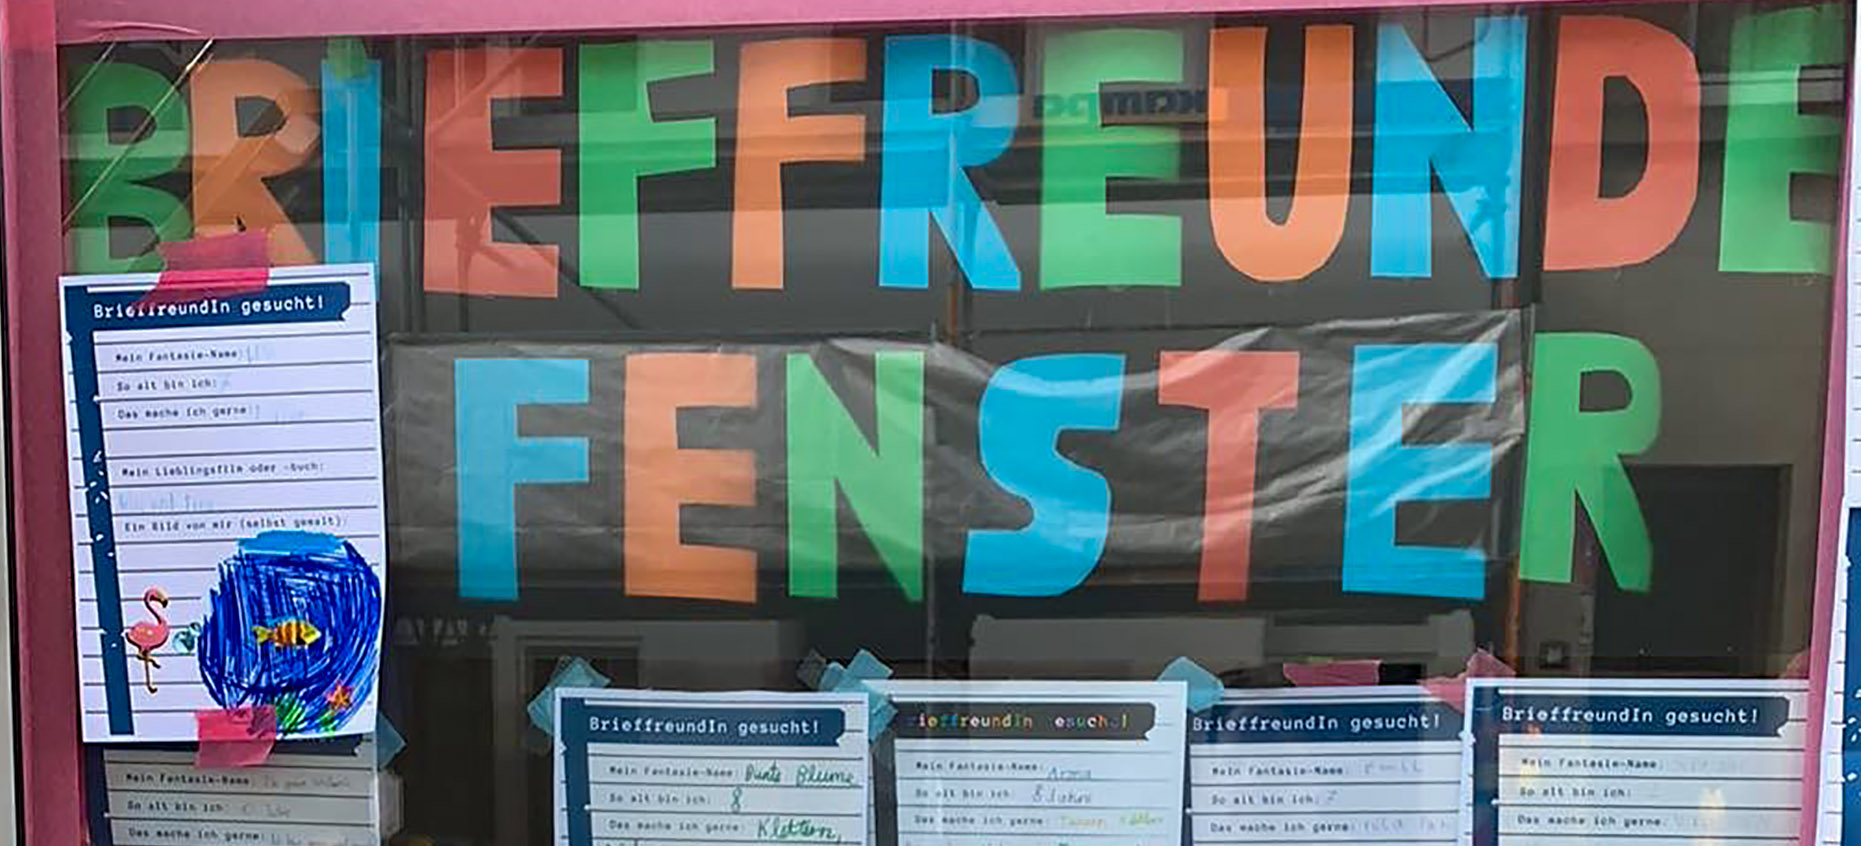 BRIEFFREUNDE
FENSTER
BrieffreundIn gesucht!
Mein Fantasie-Name:
So alt bin ich:
Das mache ich gerne:
Mein Lieblingsfilm oder -buch:
Ein Bild von mir (selbst gemalt):
Mein Fantasie-Name:
So alt bin ich:
Das mache ich gerne:
BrieffreundIn gesucht!
Mein Fantasie-Name: Bunte Blume
So alt bin ich: 8
Das mache ich gerne: Klettern,
BrieffreundIn gesucht!
Mein Fantasie-Name:
So alt bin ich: 8 Jahre
Das mache ich gerne:
BrieffreundIn gesucht!
Mein Fantasie-Name:
So alt bin ich: 7
Das mache ich gerne:
BrieffreundIn gesucht!
Mein Fantasie-Name:
So alt bin ich:
Das mache ich gerne: